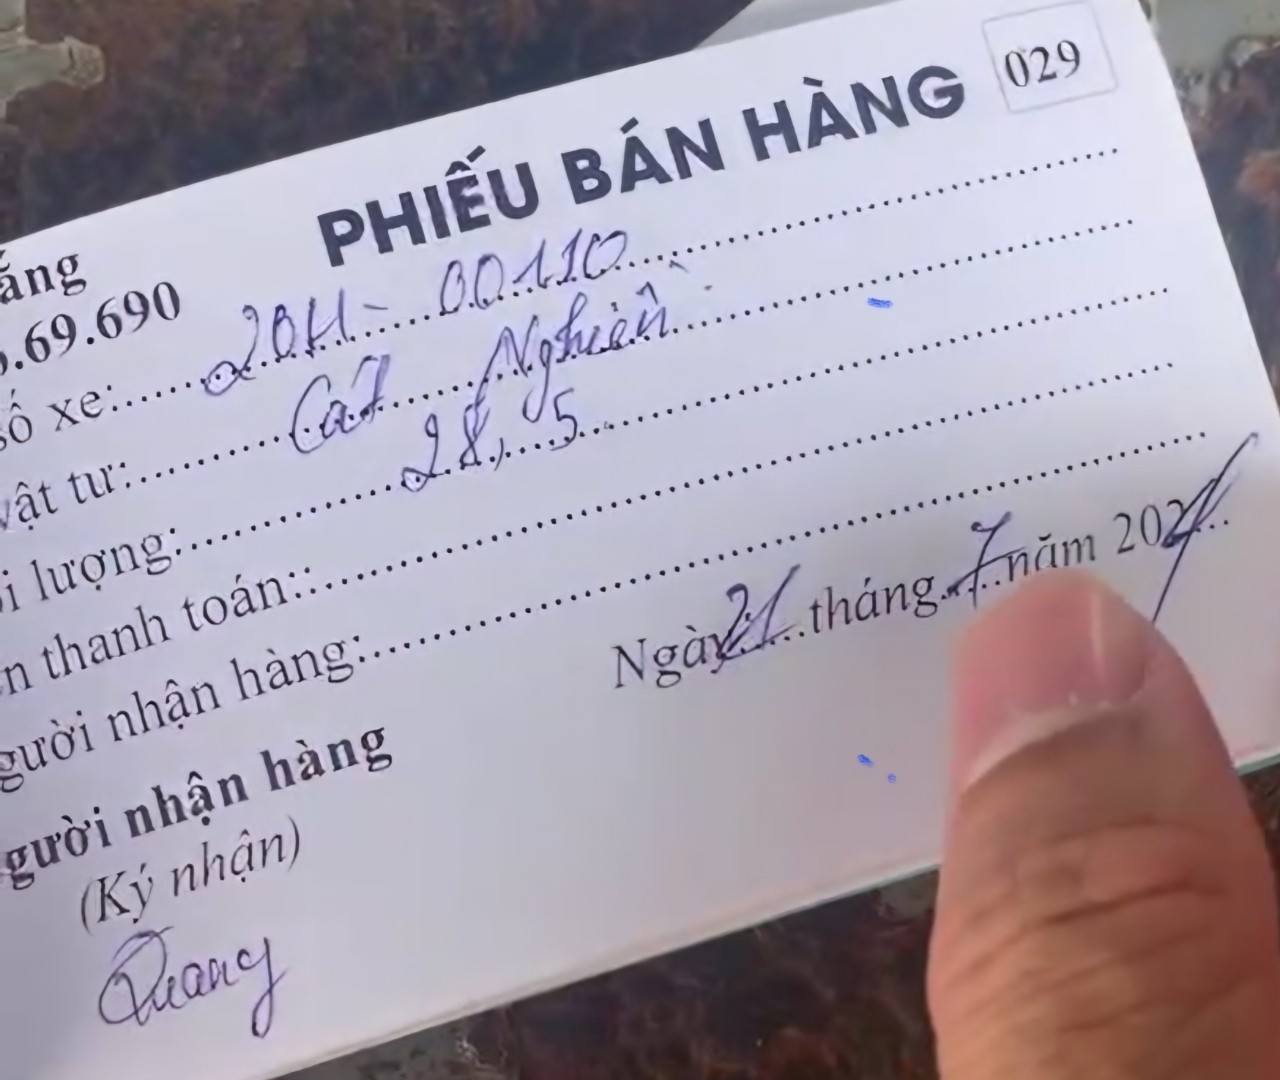 029
PHIẾU BÁN HÀNG
ăng
.69.690
số xe: 20H - 00110
vật tư: Cát Nghiền
i lượng: 28,5
n thanh toán:
gười nhận hàng:
Ngày 21 tháng 7 năm 202
gười nhận hàng
(Ký nhận)
Quang